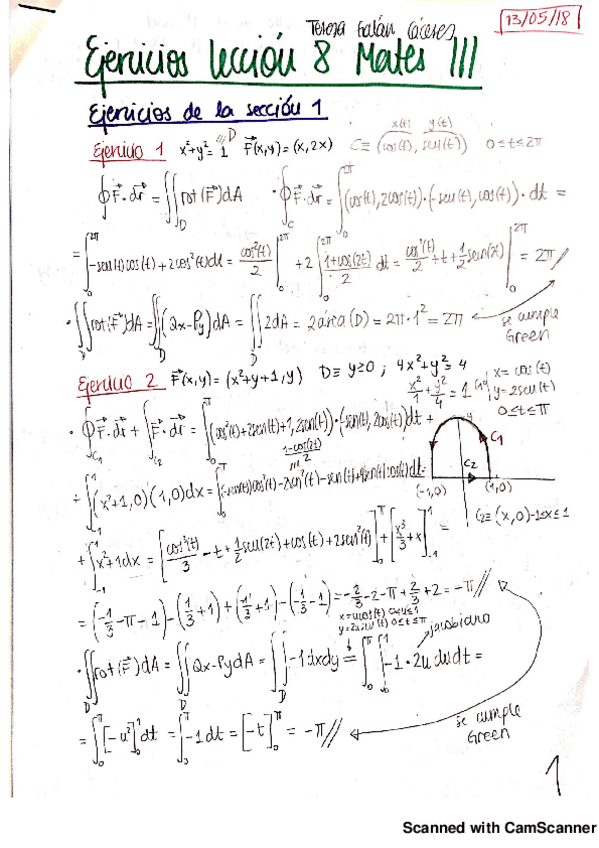 Teresa Galán Cáceres
13/05/18
Ejercicios lección 8 Mates III
Ejercicios de la sección 1
Ejercicio 1 x²+y²=1 D F⃗(x,y)=(x,2x) C≡(cos(t), sen(t)) x(t) y(t) 0≤t≤2π
∮F⃗·dr⃗ = ∬_D rot(F⃗)dA · ∮_C F⃗·dr⃗ = ∫_0^{2π} (cos(t), 2cos(t))·(-sen(t), cos(t))·dt =
= ∫_0^{2π} -sen(t)cos(t)+2cos²(t)dt = cos²(t)/2 |_0^{2π} + 2∫_0^{2π} (1+cos(2t))/2 dt = cos²(t)/2 + t + 1/2 sen(2t) |_0^{2π} = 2π//
· ∬_D rot(F⃗)dA = ∬_D (Qx-Py)dA = ∬_D 2dA = 2área(D) = 2π·1² = 2π
se cumple
Green
Ejercicio 2 F⃗(x,y) = (x²+y+1, y) D≡ y≥0 ; 4x²+y²≤4
x²/1 + y²/4 = 1 C₁ x=cos(t)
y=2sen(t)
0≤t≤π
· ∮_{C₁} F⃗·dr⃗ + ∫_{C₂} F⃗·dr⃗ = ∫_0^π (cos²(t)+2sen(t)+1, 2sen(t))·(-sen(t), 2cos(t))dt +
(1-cos(2t))/2
+ ∫_{-1}^1 (x²+1,0)(1,0)dx = ∫_0^π (-sen(t)cos²(t)-2sen²(t)-sen(t)+4sen(t)cos(t))dt +
C₁
C₂
(-1,0) (1,0)
C₂≡(x,0) -1≤x≤1
+ ∫_{-1}^1 x²+1dx = [cos³(t)/3 - t + 1/2 sen(2t) + cos(t) + 2sen²(t)]_0^π + [x³/3 + x]_{-1}^1 =
= (-1/3 -π -1) - (1/3 +1) + (1/3 +1) - (-1/3 -1) = -2/3 -2 -π + 2/3 +2 = -π//
x=ucos(t) 0≤u≤1
y=2usen(t) 0≤t≤π
jacobiano
· ∬_D rot(F⃗)dA = ∬_D Qx-PydA = ∬_D -1dxdy = ∫_0^π ∫_0^1 -1·2u dudt =
= ∫_0^π [-u²]_0^1 dt = ∫_0^π -1dt = [-t]_0^π = -π//
se cumple
Green
1
Scanned with CamScanner